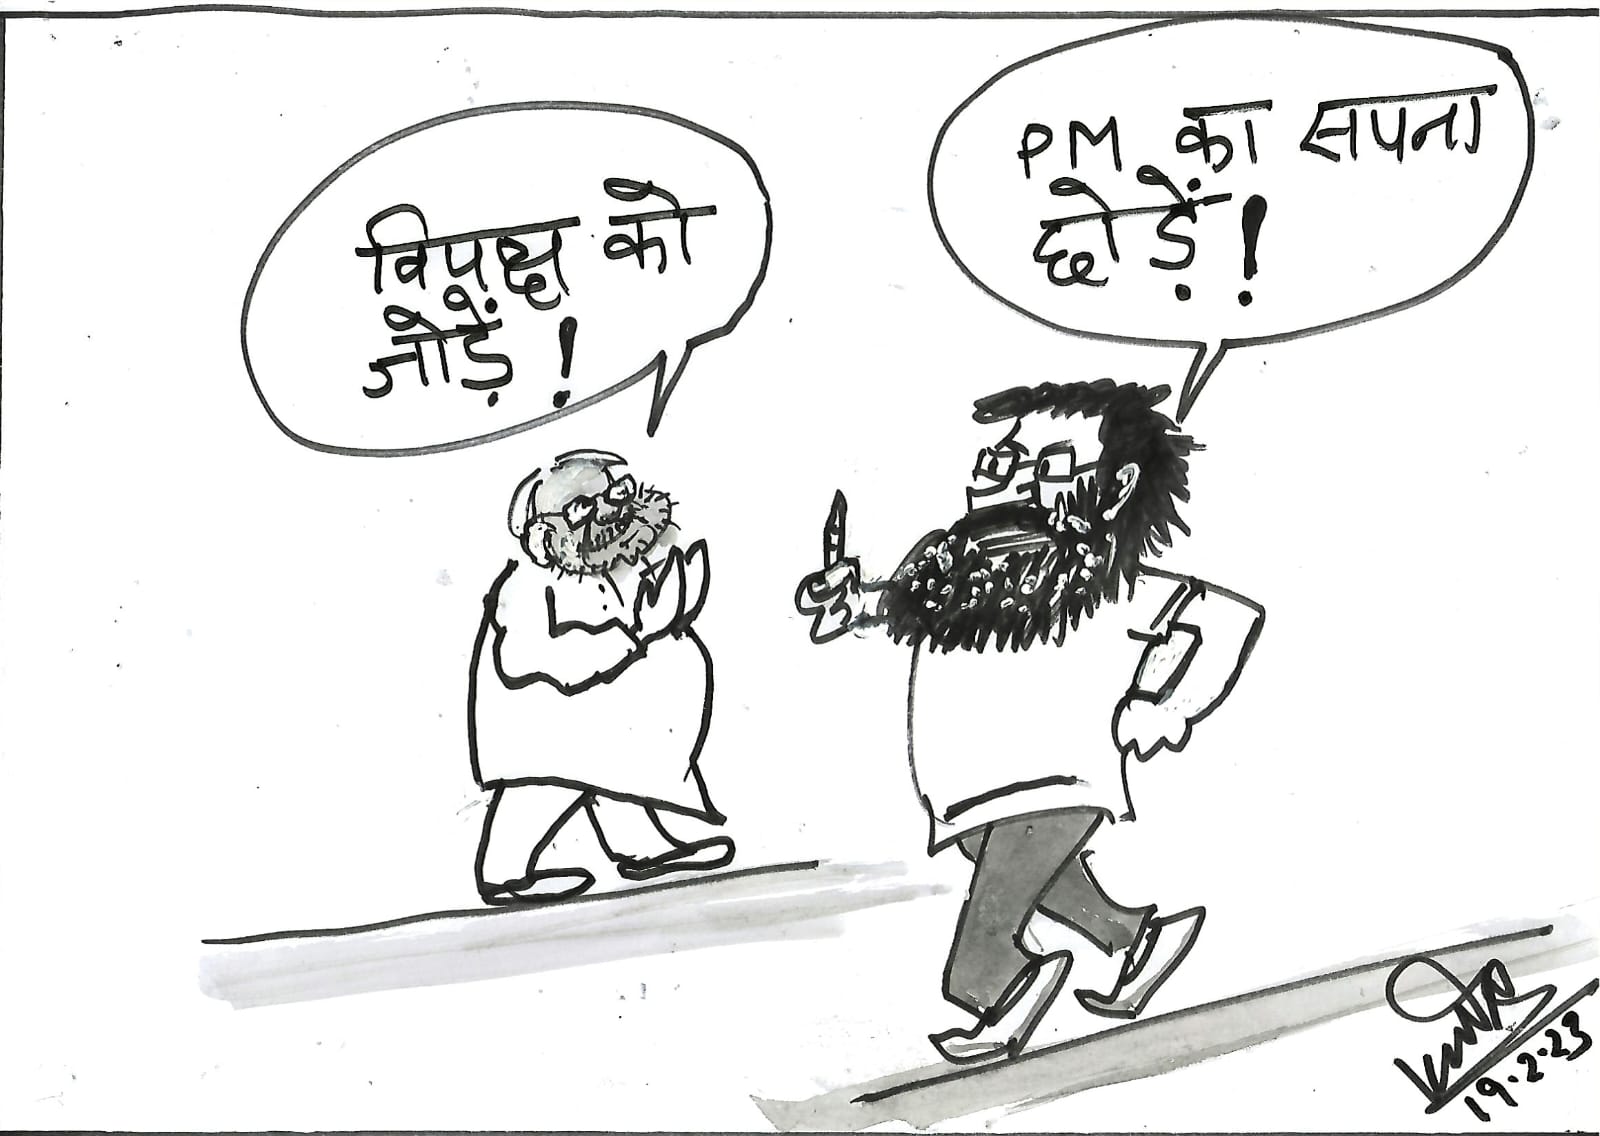 विपक्ष को
जोड़ें !
PM का सपना
छोड़ें !
19.2.23